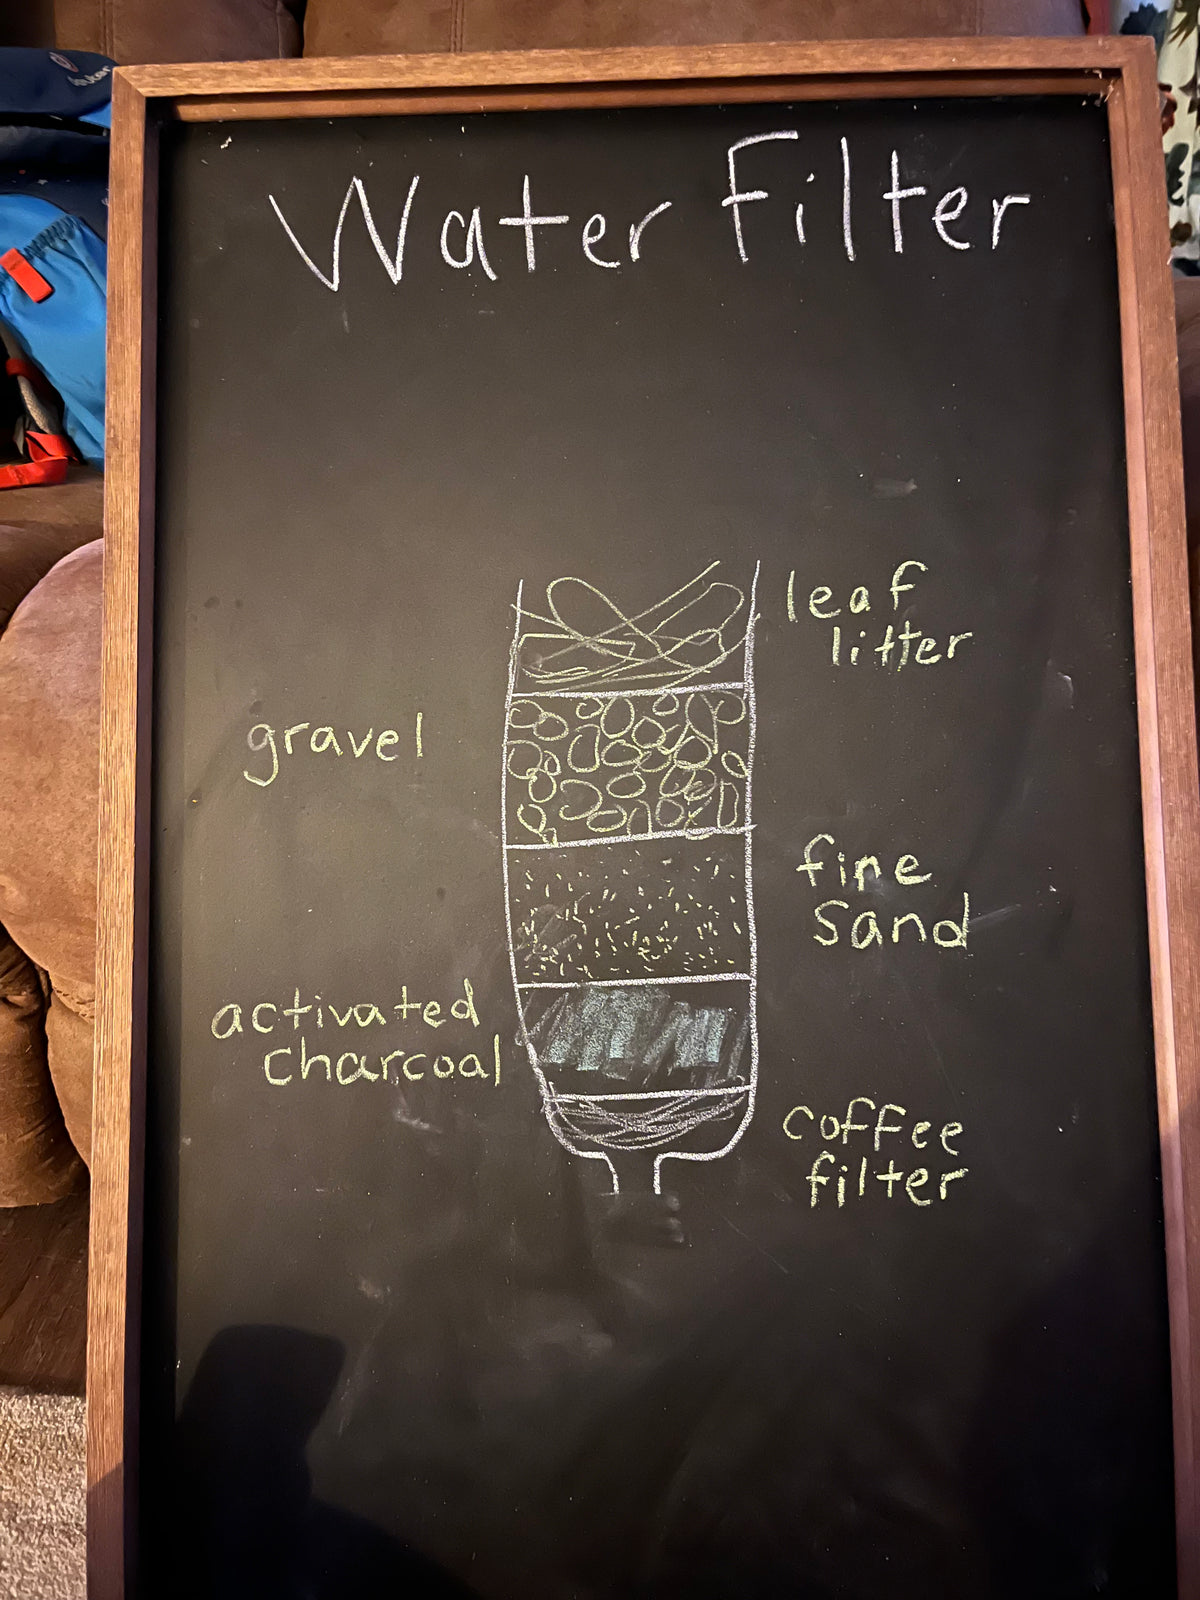 Water Filter
leaf
litter
gravel
fine
sand
activated
charcoal
coffee
filter